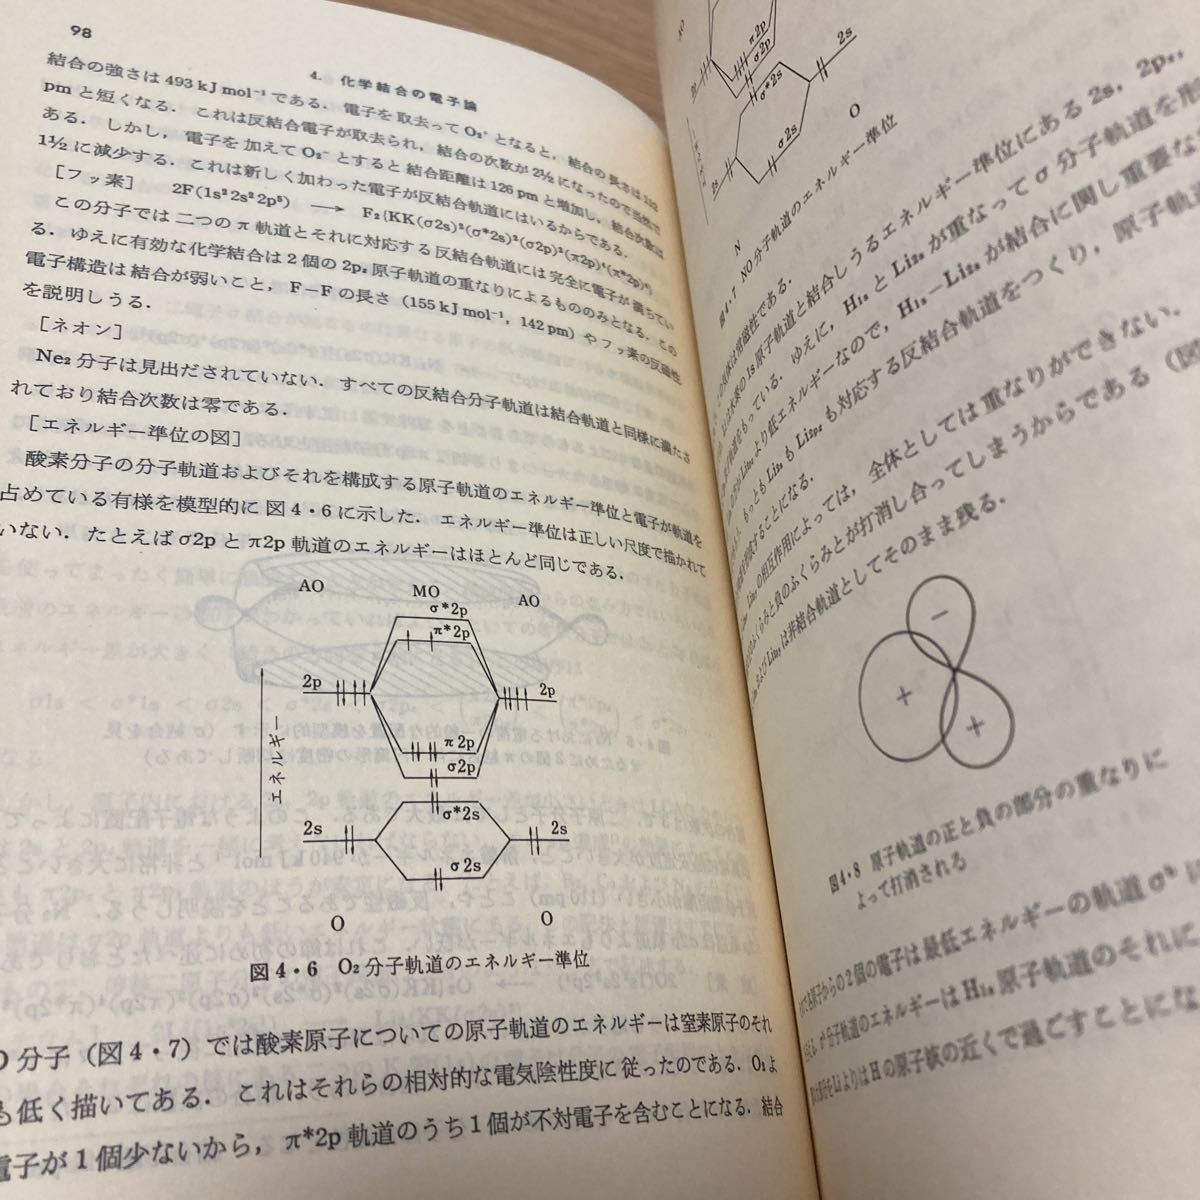 98
4. 化学結合の電子論
結合の強さは 493 kJ mol⁻¹ である．電子を取去って O₂⁺ となると，結合の長さは 112
pm と短くなる．これは反結合電子が取去られ，結合の次数が 2½ になったので当然で
ある．しかし，電子を加えて O₂⁻ とすると結合距離は 126 pm と増加し，結合次数は
1½ に減少する．これは新しく加わった電子が反結合軌道にはいるからである．
［フッ素］ 2F(1s²2s²2p⁵) ⟶ F₂{KK(σ2s)²(σ*2s)²(σ2p)²(π2p)⁴(π*2p)⁴}
この分子では二つの π 軌道とそれに対応する反結合軌道には完全に電子が満ちてい
る．ゆえに有効な化学結合は 2 個の 2p₂ 原子軌道の重なりによるもののみとなる．この
電子構造は結合が弱いこと，F－F の長さ（155 kJ mol⁻¹，142 pm）やフッ素の反磁性
を説明しうる．
［ネオン］
Ne₂ 分子は見出だされていない．すべての反結合分子軌道は結合軌道と同様に満たさ
れており結合次数は零である．
［エネルギー準位の図］
酸素分子の分子軌道およびそれを構成する原子軌道のエネルギー準位と電子が軌道を
占めている有様を模型的に図 4・6 に示した．エネルギー準位は正しい尺度で描かれて
いない．たとえば σ2p と π2p 軌道のエネルギーはほとんど同じである．
AO MO AO
σ*2p
π*2p
2p 2p
π2p
σ2p
エネルギー
σ*2s
2s 2s
σ2s
O O
図 4・6 O₂ 分子軌道のエネルギー準位
O 分子（図 4・7）では酸素原子についての原子軌道のエネルギーは窒素原子のそれ
も低く描いてある．これはそれらの相対的な電気陰性度に従ったのである．O₂ よ
電子が 1 個少ないから，π*2p 軌道のうち 1 個が不対電子を含むことになる．結合
AO
π2p
σ2p
2s
σ*2s
2s
σ2s
O
N
図 4・7 NO 分子軌道のエネルギー準位
は常磁性である．
1s 原子軌道と結合しうるエネルギー準位にある 2s，2p
をもっている．ゆえに，H₁ₛ と Li₂ₛ が重なって σ 分子軌道を形
より低エネルギーなので，H₁ₛ－Li₂ₛ が結合に関し重要な
もっとも Li₂ₛ も Li₂ₚ も対応する反結合軌道をつくり，原子軌
することになる．
の相互作用によっては，全体としては重なりができない．
ふくらみと負のふくらみとが打消し合ってしまうからである（図
は非結合軌道としてそのまま残る．
－
＋
＋
図 4・8 原子軌道の正と負の部分の重なりに
よって打消される
からの 2 個の電子は最低エネルギーの軌道 σᵇ に
分子軌道のエネルギーは H₁ₛ 原子軌道のそれに
Li よりは H の原子核の近くで過ごすことにな